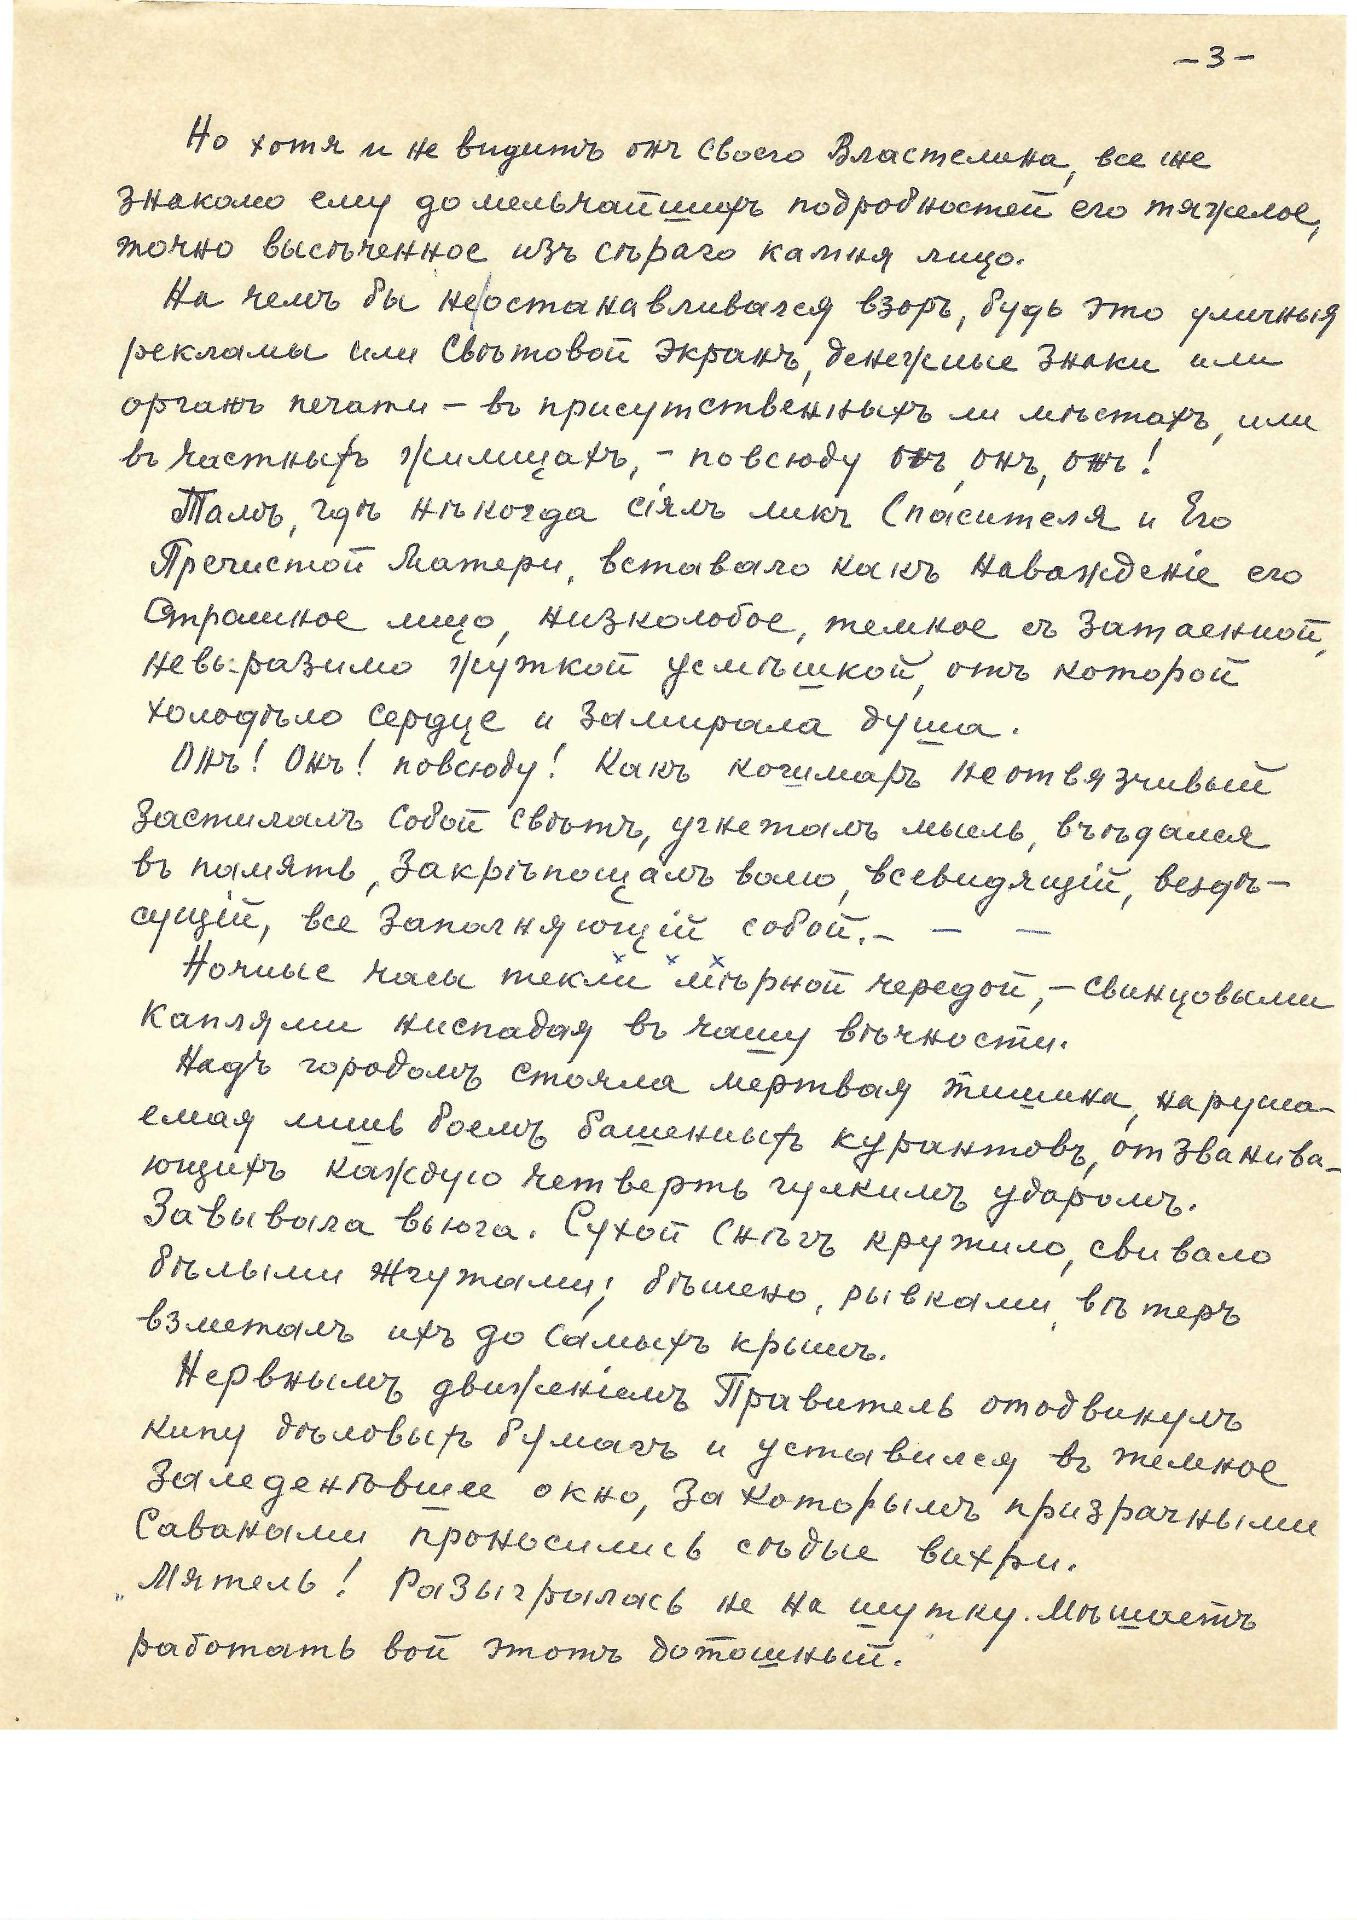 -3-
Но хотя и не видитъ онъ своего Властелина, все же
знакомо ему до мельчайшихъ подробностей его тяжелое,
точно высѣченное изъ сѣраго камня лицо.
На чемъ бы не останавливался взоръ, будь это уличныя
рекламы или свѣтовой экранъ, денежные знаки или
органъ печати – въ присутственныхъ ли мѣстахъ, или
въ частныхъ жилищахъ, – повсюду онъ, онъ, онъ!
Тамъ, гдѣ нѣкогда сіялъ ликъ Спасителя и Его
Пречистой Матери, вставало какъ наважденіе его
страшное лицо, низколобое, темное съ затаенной,
невыразимо жуткой усмѣшкой, отъ которой
холодѣло сердце и замирала душа.
Онъ! Онъ! повсюду! Какъ кошмаръ неотвязчивый
застилалъ собой свѣтъ, угнеталъ мысль, въѣдался
въ память, закрѣпощалъ волю, всевидящій, вездѣ-
сущій, все заполняющій собой. – – –
x x x
Ночные часы текли мѣрной чередой, – свинцовыми
каплями ниспадая въ чашу вѣчности.
Надъ городомъ стояла мертвая тишина, наруша-
емая лишь боемъ башенныхъ курантовъ, отзванива-
ющихъ каждую четверть гулкимъ ударомъ.
Завывала вьюга. Сухой снѣгъ кружило, свивало
бѣлыми жгутами; бѣшено, рывками, вѣтеръ
взметалъ ихъ до самыхъ крышъ.
Нервнымъ движеніемъ Правитель отодвинулъ
кипу дѣловыхъ бумагъ и уставился въ темное
заледенѣвшее окно, за которымъ призрачными
саванами проносились сѣдые вихри.
„Мятель! Разыгралась не на шутку. Мѣшаетъ
работать вой этотъ дотошный.